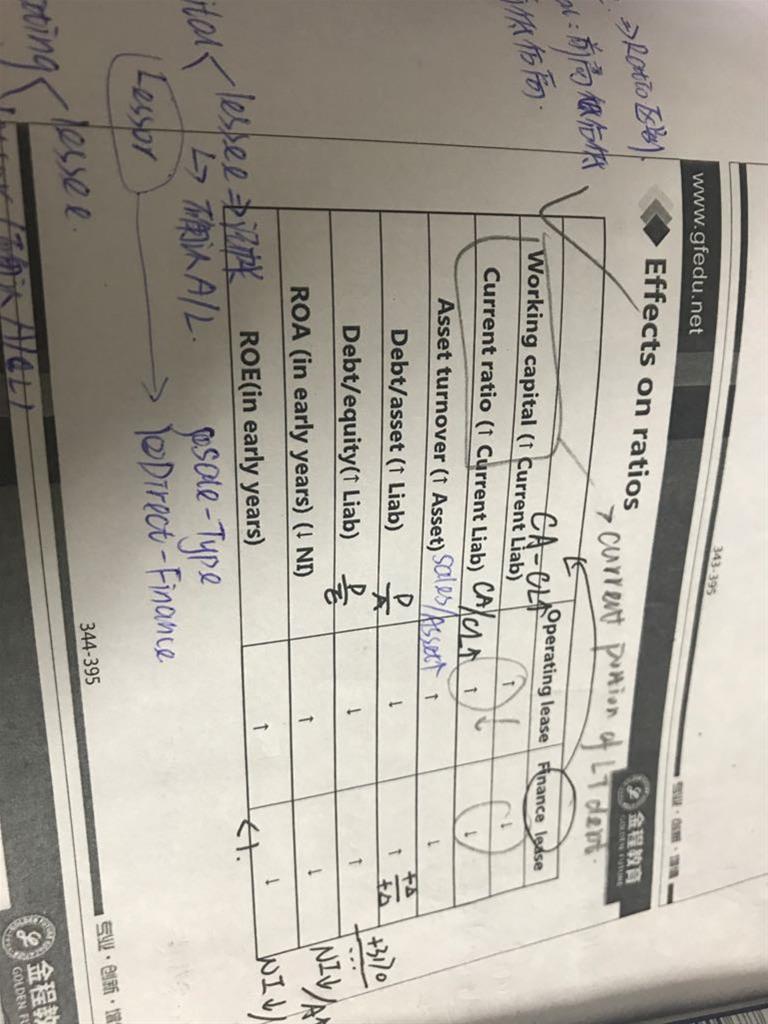 343-395
www.gfedu.net
专业·创新·增值
Effects on ratios
金程教育
GOLDEN FUTURE
> current portion of LT debt.
Operating lease Finance lease
Working capital (↑ Current Liab) CA-CL↑ ↑ ↓
Current ratio (↑ Current Liab) CA/CL↑ ↑ ↓
Asset turnover (↑ Asset) Sales/Asset↑ ↑ ↓
Debt/asset (↑ Liab) D/A ↓ ↑ +Δ/+Δ
Debt/equity(↑ Liab) D/E ↓ ↑
ROA (in early years) (↓ NI) ↑ ↓ NI↓/A
ROE(in early years) ↑ ↓ NI↓/
<1.
lessee ⇒
↳ 确认 A/L.
Lessor
Sale-Type
Direct-Finance
344-395
lessee.
专业·创新·增
金程教
GOLDEN FU